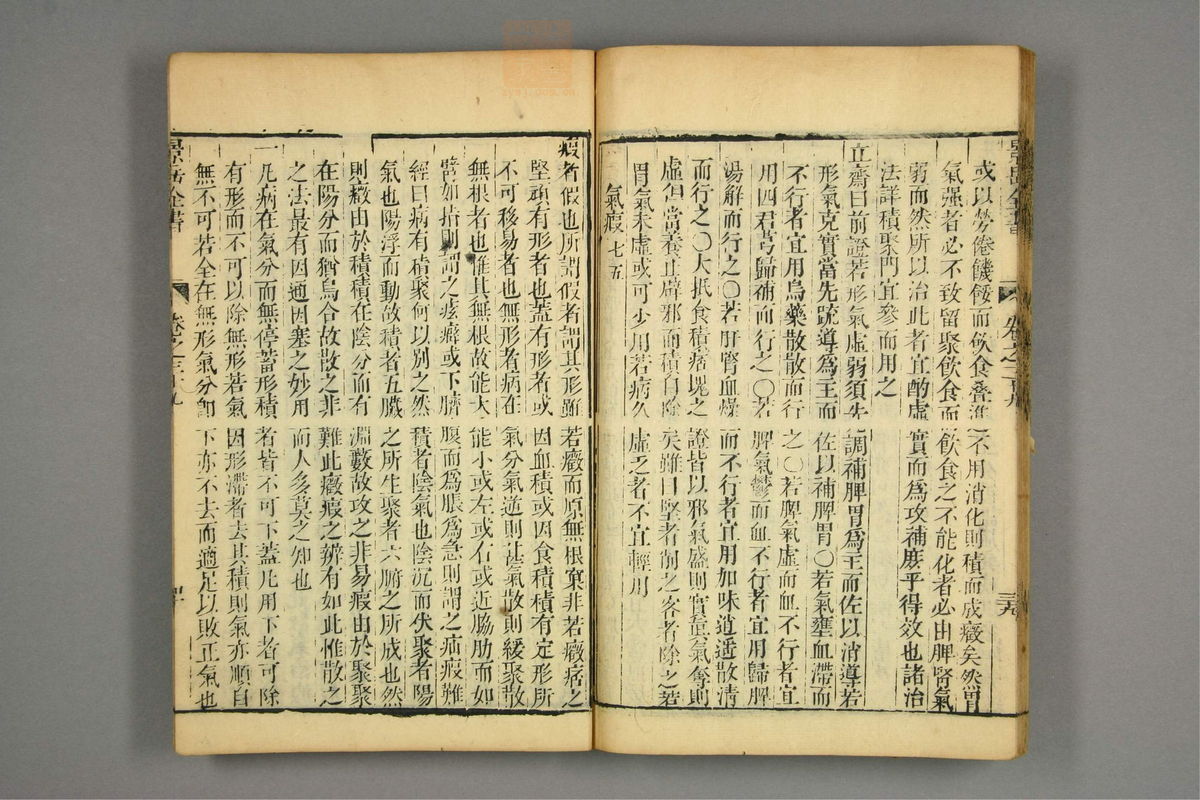 或以勞倦饑餒而飲食叠進不用消化則積而成癥矣然胃
氣强者必不致留聚飲食而飲食之不能化者必由脾腎氣
弱而然所以治此者宜酌虛實而爲攻補庶乎得效也諸治
法詳積聚門宜參而用之
立齋曰前證若形氣虛弱須先調補脾胃爲主而佐以消導若
形氣充實當先疏導爲主而佐以補脾胃〇若氣壅血滯而
不行者宜用烏藥散散而行之〇若脾氣虛而血不行者宜
用四君芎歸補而行之〇若脾氣鬱而血不行者宜用歸脾
湯解而行之〇若肝腎血燥而不行者宜用加味逍遥散清
而行之〇大抵食積痞塊之證皆以邪氣盛則實眞氣奪則
虛但當養正辟邪而積自除矣雖曰堅者削之客者除之若
胃氣未虛或可少用若病久虛乏者不宜輕用
氣瘕 七五
瘕者假也所謂假者謂其形雖若癥而原無根窠非若癥痞之
堅頑有形者也蓋有形者或因血積或因食積積有定形所
不可移易者也無形者病在氣分氣逆則甚氣散則緩聚散
無根者也惟其無根故能大能小或左或右或近脇肋而如
臂如指則謂之痃癖或下臍腹而爲脹爲急則謂之疝瘕難
經曰病有積聚何以別之然積者陰氣也陰沉而伏聚者陽
氣也陽浮而動故積者五臟之所生聚者六腑之所成也然
則癥由於積積在陰分而有淵藪故攻之非易瘕由於聚聚
在陽分而猶烏合故散之非難此癥瘕之辨有如此惟散之
之法最有因通因塞之妙用而人多莫之知也
一凡病在氣分而無停蓄形積者皆不可下蓋凡用下者可除
有形而不可以除無形若氣因形滯者去其積則氣亦順自
無不可若全在無形氣分卽下亦不去而適足以敗正氣也
景岳全書
卷之三十九